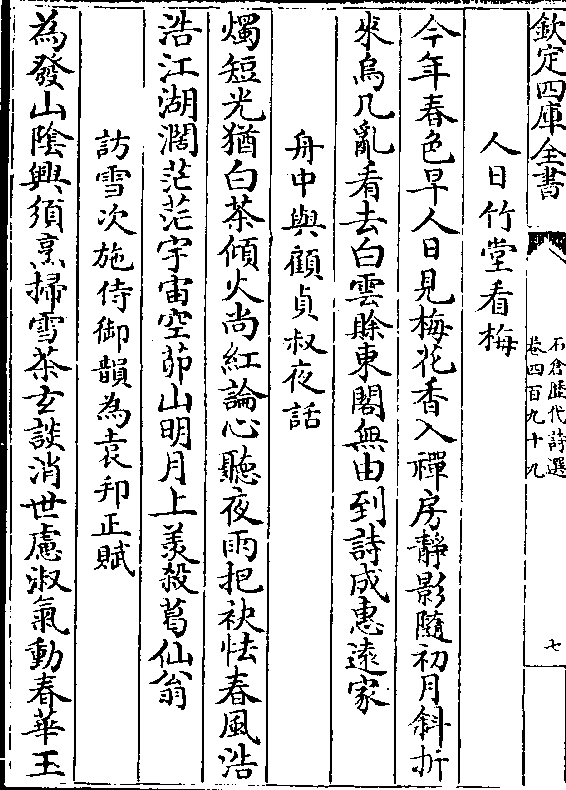 欽定四庫全書
石倉歷代詩選
卷四百九十九
七
人日竹堂看梅
今年春色早人日見梅花香入禪房靜影隨初月斜折
來烏几亂看去白雲賖東閣無由到詩成惠遠家
舟中與顧貞叔夜話
燭短光猶白茶傾火尚紅論心聽夜雨把袂怯春風浩
浩江湖濶茫茫宇宙空茆山明月上羨殺葛仙翁
訪雪次施侍御韻為袁邦正賦
為發山隂興須烹掃雪茶玄談消世慮淑氣動春華玉